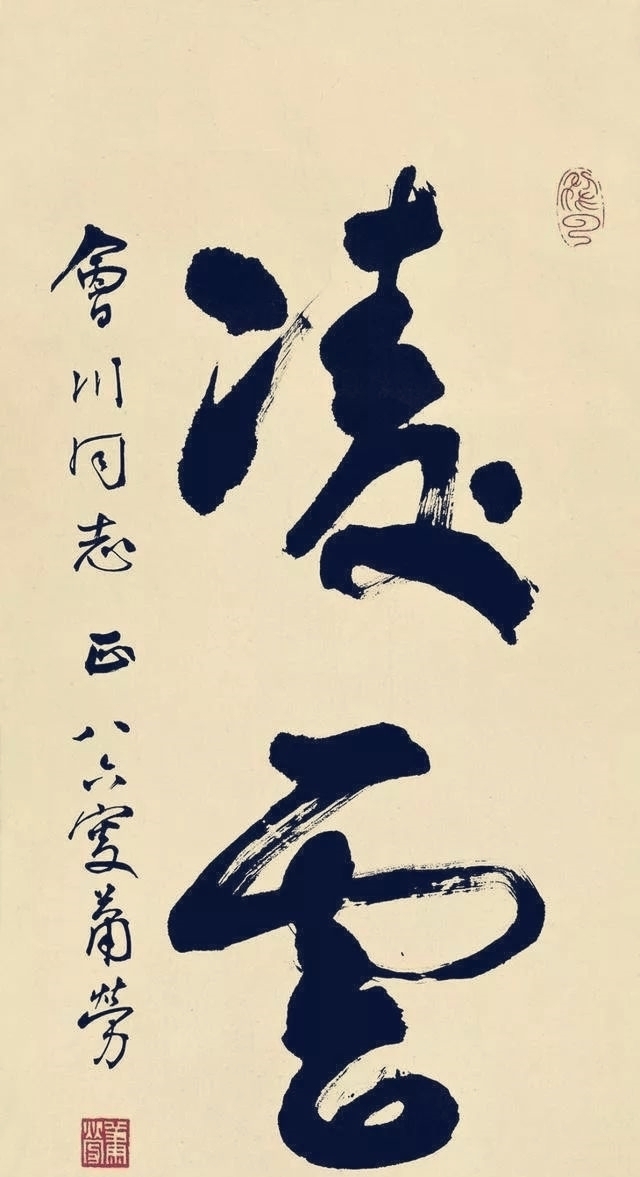 凌雲
會川同志 正 八六叟蕭勞
蕭勞